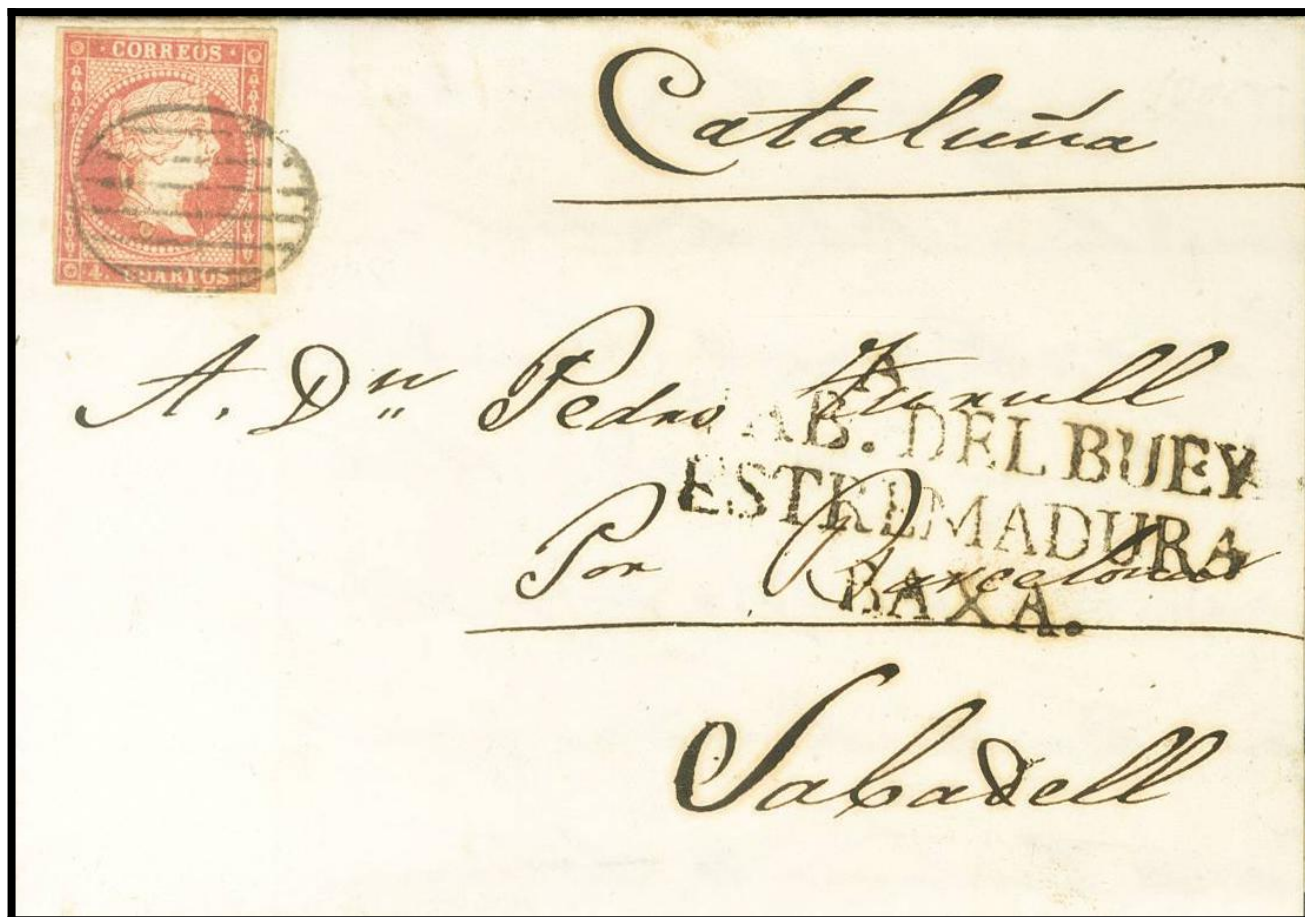 CORREOS
4. CUARTOS
Cataluña
A. Dn Pedro Turull
A
CAB. DEL BUEY
ESTREMADURA
BAXA.
Por Barcelona
Sabadell